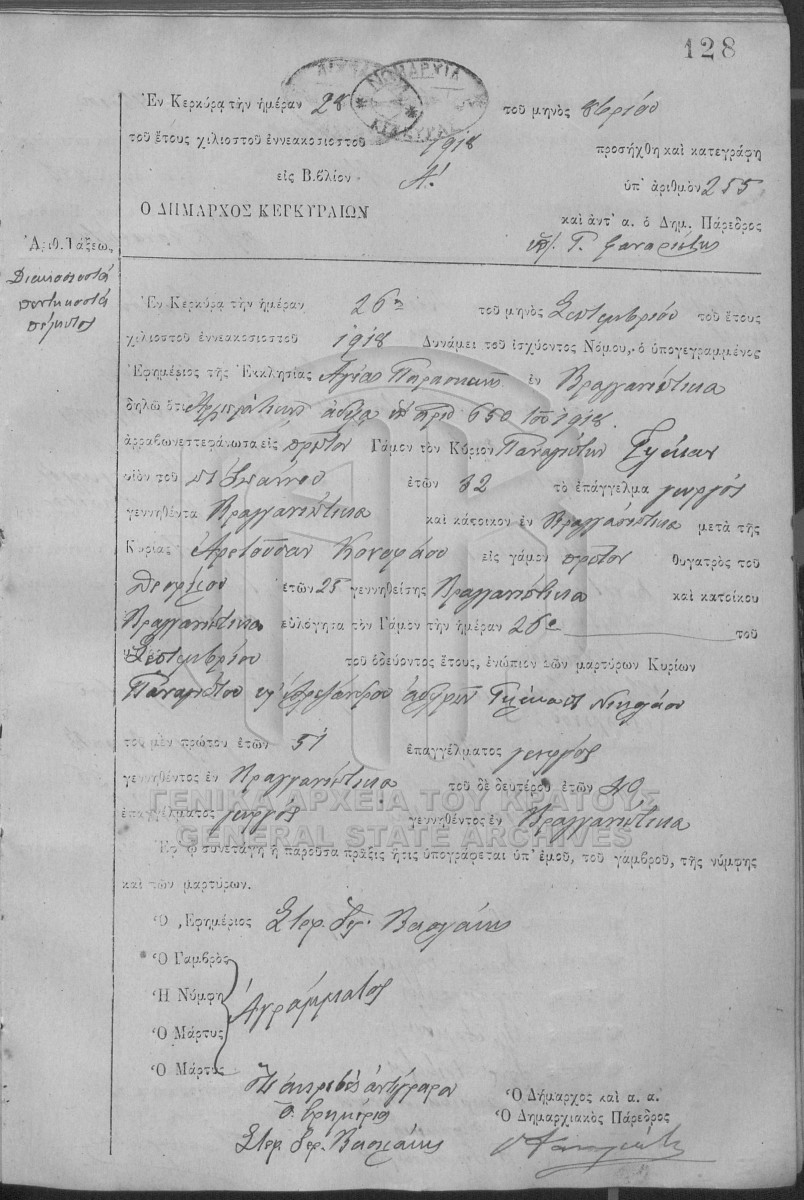 128
ΝΟΜΑΡΧΙΑ
ΚΕΡΚΥΡΑΣ
Ἐν Κερκύρᾳ τὴν ἡμέραν 28 τοῦ μηνὸς 8βρίου
τοῦ ἔτους χιλιοστοῦ ἐννεακοσιοστοῦ 1918 προσήχθη καὶ κατεγράφη
εἰς Βιβλίον Α! ὑπ' ἀριθμὸν 255
Ο ΔΗΜΑΡΧΟΣ ΚΕΡΚΥΡΑΙΩΝ καὶ ἀντ' α. ὁ Δημ. Πάρεδρος
Ἀριθ. Τάξεως,
Διακοσιοστὰ
πεντηκοστὰ
πέμπτος
Ἐν Κερκύρᾳ τὴν ἡμέραν 26η τοῦ μηνὸς Σεπτεμβρίου τοῦ ἔτους
χιλιοστοῦ ἐννεακοσιοστοῦ 1918 Δυνάμει τοῦ ἰσχύοντος Νόμου, ὁ ὑπογεγραμμένος
Ἐφημέριος τῆς Ἐκκλησίας Ἁγίας Παρασκευῆς ἐν Βραγανιώτικα
δηλῶ ὅτι Ἀρχιερατικῇ ἀδείᾳ 650 1918.
ἀρραβωνεστεφάνωσα εἰς πρῶτον Γάμον τὸν Κύριον Παναγιώτην Γκίκαν
υἱὸν τοῦ Ἰωάννου ἐτῶν 32 τὸ ἐπάγγελμα γεωργός
γεννηθέντα Βραγανιώτικα καὶ κάτοικον ἐν Βραγανιώτικα μετὰ τῆς
Κυρίας Ἀρετοῦσαν Κονοφάου εἰς γάμον πρῶτον θυγατρὸς τοῦ
ἐτῶν 25 γεννηθείσης Βραγανιώτικα καὶ κατοίκου
Βραγανιώτικα εὐλόγησα τὸν Γάμον τὴν ἡμέραν 26η τοῦ
Σεπτεμβρίου τοῦ ὁδεύοντος ἔτους, ἐνώπιον τῶν μαρτύρων Κυρίων
Παναγιώτου Ἀλεξάνδρου Γκίκα Νικολάου
τοῦ μὲν πρώτου ἐτῶν 51 ἐπαγγέλματος γεωργός
γεννηθέντος ἐν Βραγανιώτικα τοῦ δὲ δευτέρου ἐτῶν 40
ΓΕΝΙΚΑ ΑΡΧΕΙΑ ΤΟΥ ΚΡΑΤΟΥΣ
ἐπαγγέλματος γεωργός γεννηθέντος ἐν Βραγανιώτικα
GENERAL STATE ARCHIVES
Ἐφ' ᾧ συνετάγη ἡ παροῦσα πρᾶξις ἥτις ὑπογράφεται ὑπ' ἐμοῦ, τοῦ γαμβροῦ, τῆς νύμφης
καὶ τῶν μαρτύρων.
Ὁ Ἐφημέριος
Ὁ Γαμβρὸς
Ἡ Νύμφη Ἀγράμματος
Ὁ Μάρτυς
Ὁ Μάρτυς
ἀκριβὲς ἀντίγραφον
Ὁ Δήμαρχος καὶ α. α.
ὁ Ἐφημέριος Ὁ Δημαρχιακὸς Πάρεδρος